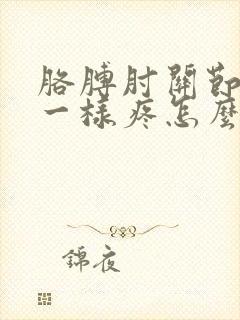 胳膊肘關節
一樣疼怎麼
錦夜